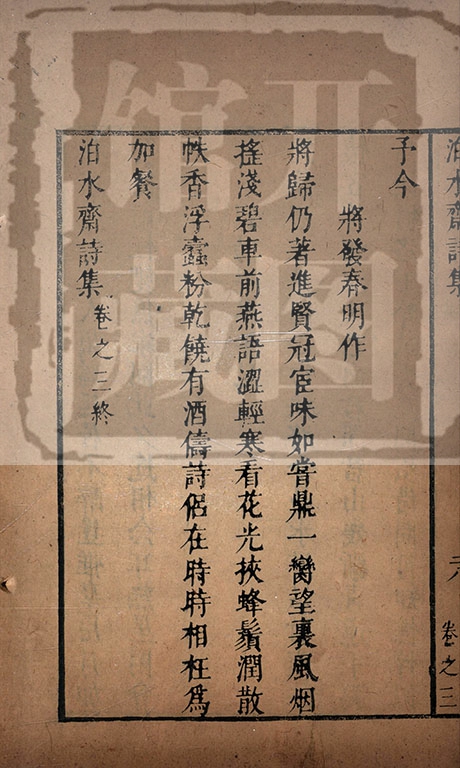 泊水齋詩集
六
卷之三
予今
將發春明作
將歸仍著進賢冠宦味如嘗鼎一臠望裏風烟
搖淺碧車前燕語澀輕寒看花光挾蜂鬚潤散
帙香浮蠹粉乾饒有酒儔詩侶在時時相枉爲
加餐
泊水齋詩集
卷之三終